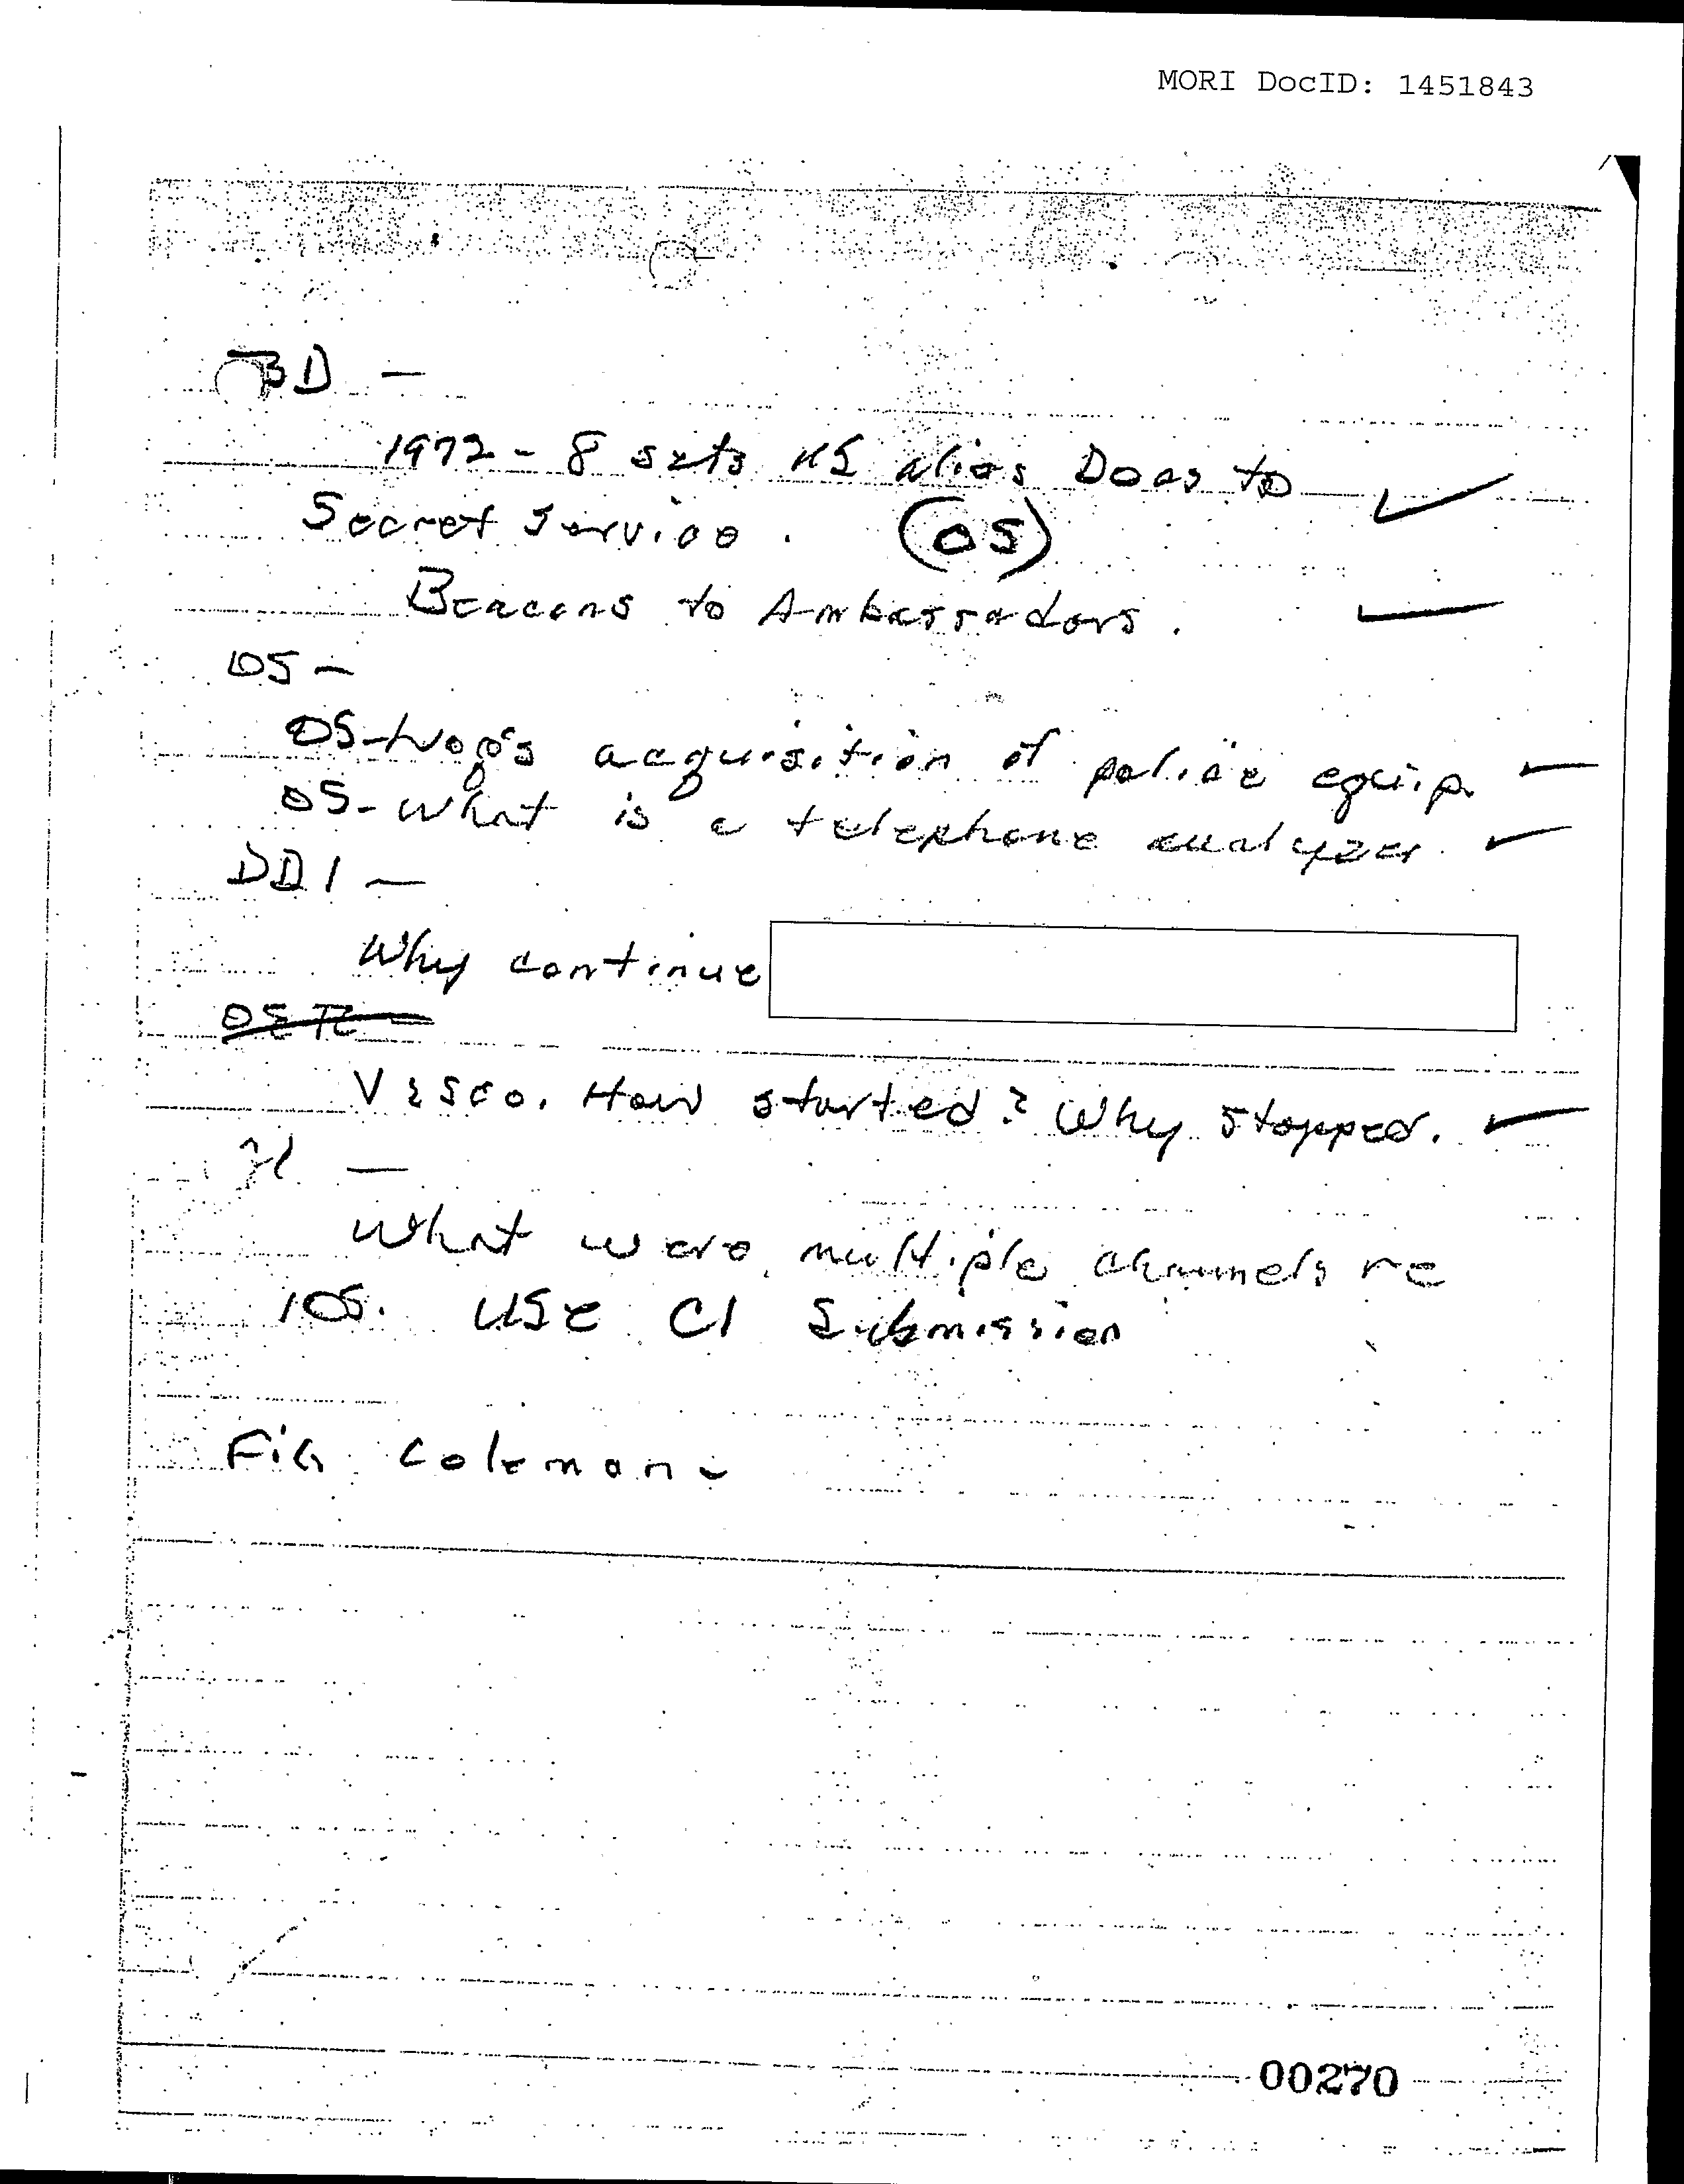 MORI DocID: 1451843
BD —
1972 - 8 sets US alias Docs to
Secret Service. (OS)
Beacons to Ambassadors.
OS —
OS - acquisition of police equip.
OS - What is a telephone analyzer.
DDI —
Why continue
Vesco. How started? Why stopped.
What were multiple channels re
IOS. Use CI Submission
Coleman
00270